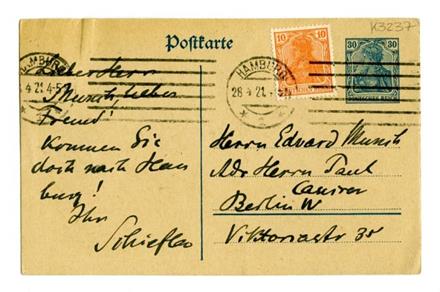 K3237
Postkarte
10 10
30 30
DEUTSCHES REICH
HAMBURG
HAMBURG
28.4.21.
4.21.4-5
Lieber Herr
Munch, lieber
Freund!
Kommen Sie
doch nach Ham
burg!
Ihr
Schiefler
Herrn Edvard Munch
Adr Herrn Paul
Cassirer
Berlin W
Viktoriastr 35